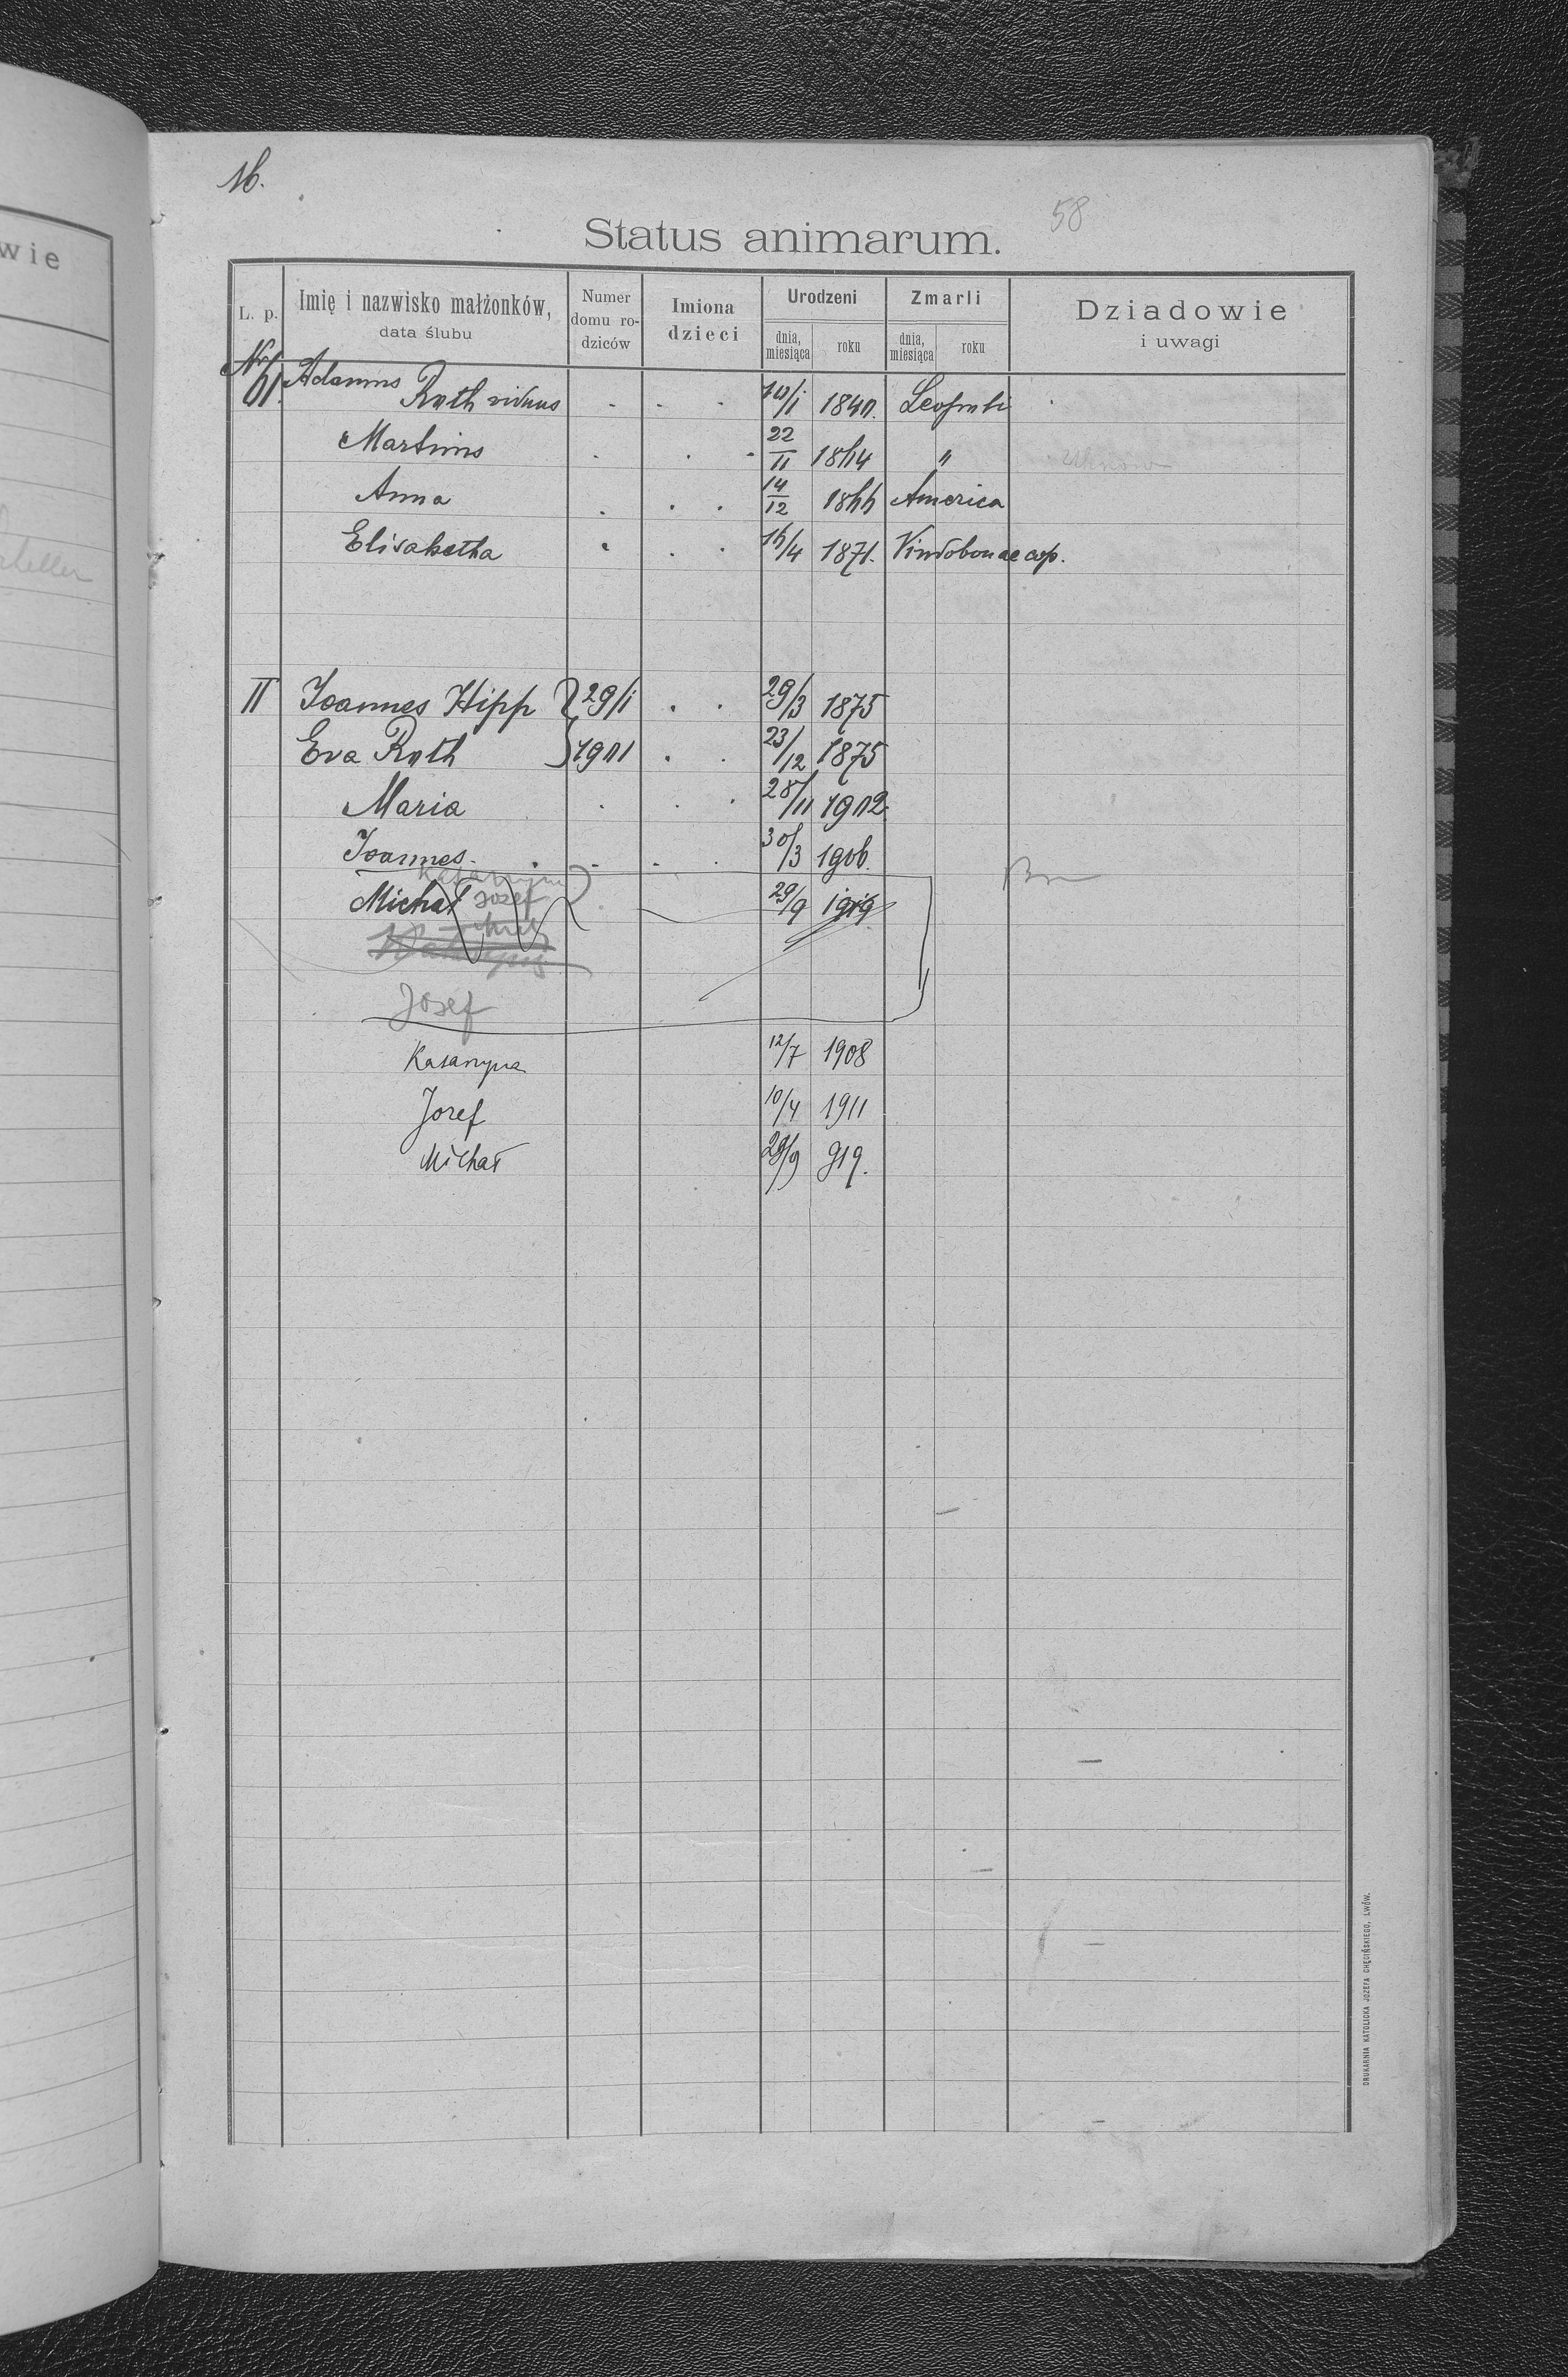 16.
58
Status animarum.
L. p.
Imię i nazwisko małżonków,
data ślubu
Numer
domu ro-
dziców
Imiona
dzieci
Urodzeni
dnia,
miesiąca
roku
Zmarli
dnia,
miesiąca
roku
Dziadowie
i uwagi
Adamus
Roth viduus 10/I 1840. Leopoli
Martinus 22/II 1864 "
Anna 14/12 1866 America
Elisabetha 16/4 1871. Vindobonae cop.
II Joannes Hipp 29/I 29/3 1875
Eva Roth 1901 23/12 1875
Maria 28/11 1902
Joannes 30/3 1906.
Katarzyna
Michał Józef 29/9 1919
Josef
Katarzyna 12/7 1908
Jozef 10/4 1911
Michał 29/9 919.
DRUKARNIA KATOLICKA JOZEFA CHĘCIŃSKIEGO, LWÓW.
wie